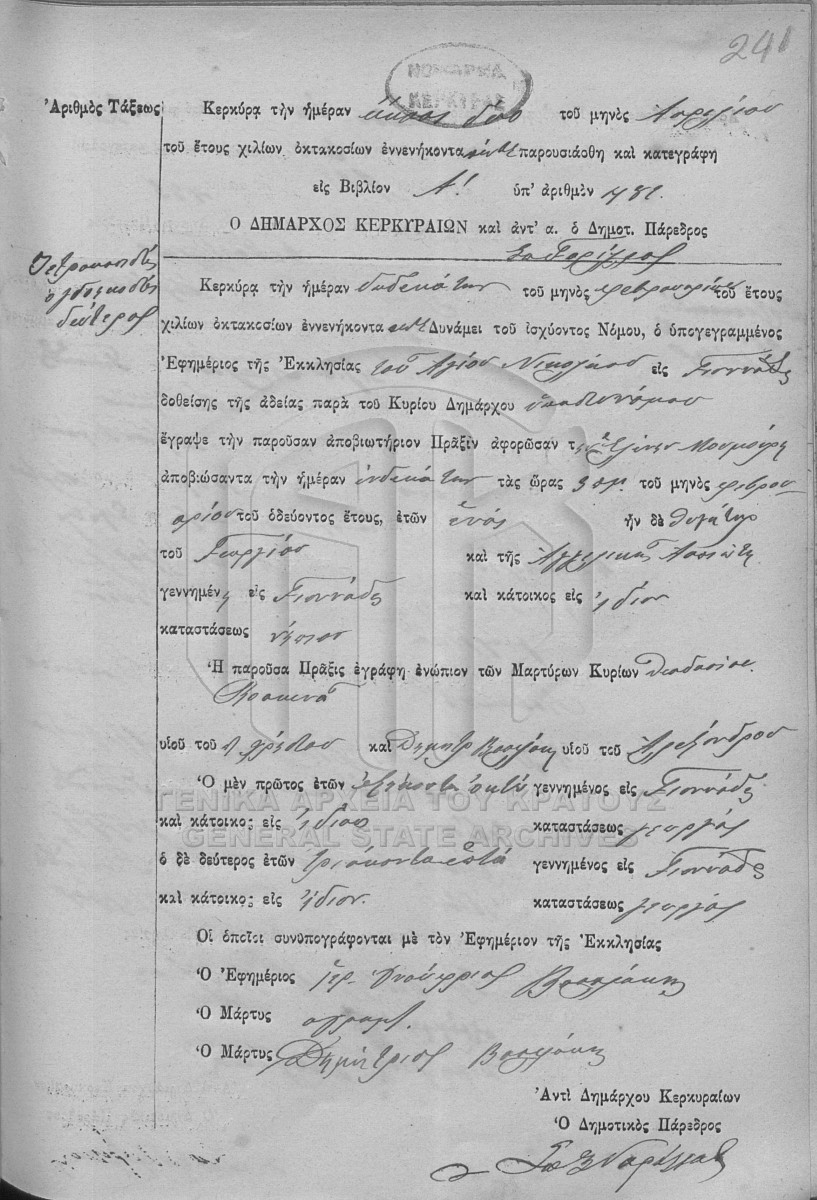 241
ΝΟΜΑΡΧΙΑ
ΚΕΡΚΥΡΑΣ
Ἀριθμὸς Τάξεως
Κερκύρᾳ τὴν ἡμέραν εἴκοσι δύο τοῦ μηνὸς Ἀπριλίου
τοῦ ἔτους χιλίων ὀκτακοσίων ἐννενήκοντα πέντε παρουσιάσθη καὶ κατεγράφη
εἰς Βιβλίον Α! ὑπ' ἀριθμὸν 482.
Ο ΔΗΜΑΡΧΟΣ ΚΕΡΚΥΡΑΙΩΝ καὶ ἀντ' α. ὁ Δημοτ. Πάρεδρος
Τετρακοσιοστὸς
ὀγδοηκοστὸς
δεύτερος
Κερκύρᾳ τὴν ἡμέραν δωδεκάτην τοῦ μηνὸς Φεβρουαρίου τοῦ ἔτους
χιλίων ὀκτακοσίων ἐννενήκοντα πέντε Δυνάμει τοῦ ἰσχύοντος Νόμου, ὁ ὑπογεγραμμένος
Ἐφημέριος τῆς Ἐκκλησίας τοῦ Ἁγίου Νικολάου εἰς Γιαννάδες
δοθείσης τῆς ἀδείας παρὰ τοῦ Κυρίου Δημάρχου ὑπαστυνόμου
ἔγραψε τὴν παροῦσαν ἀποβιωτήριον Πρᾶξιν ἀφορῶσαν τὴν Ἑλένην Μουμούρη
ἀποβιώσαντα τὴν ἡμέραν ἑνδεκάτην τὰς ὥρας 3 πμ. τοῦ μηνὸς Φεβρου-
αρίου τοῦ ὁδεύοντος ἔτους, ἐτῶν ἑνός ἦν δὲ θυγάτηρ
τοῦ Γεωργίου καὶ τῆς Ἀγγελικῆς Ἀσπιώτη
γεννημένη εἰς Γιαννάδες καὶ κάτοικος εἰς ἴδιον
καταστάσεως νήπιον
Ἡ παροῦσα Πρᾶξις ἐγράφη ἐνώπιον τῶν Μαρτύρων Κυρίων Θεοδοσίου
υἱοῦ τοῦ π. Χρήστου καὶ Δημητρ. Βασιλάκη υἱοῦ τοῦ Ἀλεξάνδρου
Ὁ μὲν πρῶτος ἐτῶν ἑξήκοντα ὀκτώ γεννημένος εἰς Γιαννάδες
ΓΕΝΙΚΑ ΑΡΧΕΙΑ ΤΟΥ ΚΡΑΤΟΥΣ
καὶ κάτοικος εἰς ἴδιον καταστάσεως γεωργός
GENERAL STATE ARCHIVES
ὁ δὲ δεύτερος ἐτῶν τριάκοντα ἑπτά γεννημένος εἰς Γιαννάδες
καὶ κάτοικος εἰς ἴδιον. καταστάσεως γεωργός
Οἱ ὁποῖοι συνυπογράφονται μὲ τὸν Ἐφημέριον τῆς Ἐκκλησίας
Ὁ Ἐφημέριος ἱερ. Ὀνούφριος Βασιλάκης
Ὁ Μάρτυς αγραμ.
Ὁ Μάρτυς Δημήτριος Βασιλάκης
Ἀντὶ Δημάρχου Κερκυραίων
Ὁ Δημοτικὸς Πάρεδρος